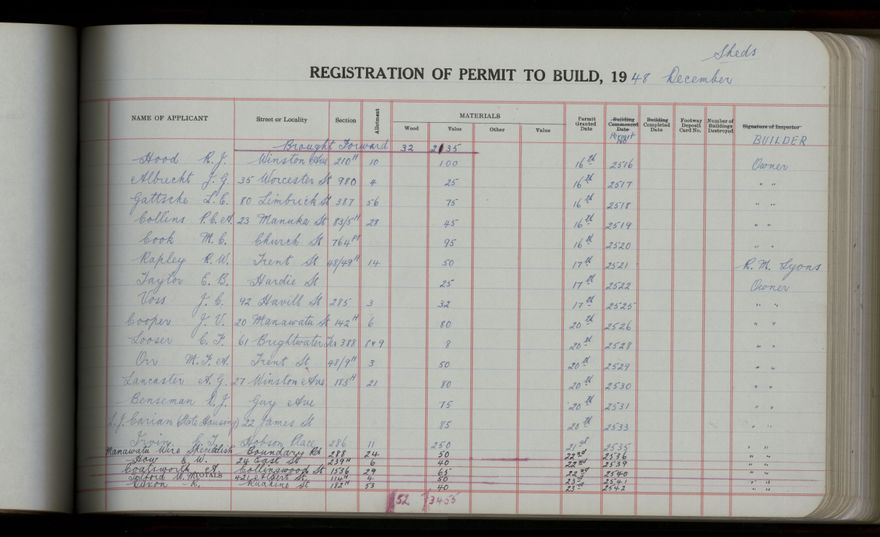 Sheds
REGISTRATION OF PERMIT TO BUILD, 1948 December
NAME OF APPLICANT Street or Locality Section Allotment MATERIALS Permit Granted Date Building Commenced Date Building Completed Date Footway Deposit Card No. Number of Buildings Destroyed Signature of Inspector
Wood Value Other Value Permit No BUILDER
Brought Forward 32 2135
Hood R. J. Winston Ave 210H 10 100 16th 2516 Owner
Albrecht J. G. 35 Worcester St 980 4 25 16th 2517 " "
Gattsche L. C. 80 Limbrick St 387 56 75 16th 2518 " "
Collins P. C. A. 23 Manuka St 83/5H 28 45 16th 2519 " "
Cook M. C. Church St 764 95 16th 2520 " "
Rapley R. W. Trent St 48/49H 14 50 17th 2521 R. M. Lyons
Taylor C. B. Hardie St 25 17th 2522 Owner
Voss J. C. 42 Havill St 285 3 32 17th 2525 " "
Cooper J. V. 20 Manawatu St 142H 6 80 20th 2526 " "
Looser C. F. 61 Brightwater Tce 388 8 8 20th 2528 " "
Orr M. F. A. Trent St 48/9H 3 50 20th 2529 " "
Lancaster A. G. 27 Winston Ave 185H 21 80 20th 2530 " "
Benseman R. J. Guy Ave 75 20th 2531 " "
L. J. Carian (State Housing) 22 James St 85 20th 2533 " "
Irvin C. J. Hobson Place 286 11 250 21st 2535 " "
Manawatu Wire Specialists Boundary Rd 288 24 50 22nd 2536 " "
How E. W. 24 East St 239H 6 40 22nd 2539 " "
Coatsworth A. Collingwood St 1536 29 65 22nd 2540 " "
Telford W. M. TOTALS 421 Albert St 114H 4 50 23rd 2541 " "
Luxon R. Ruahine St 182H 53 40 23rd 2542 " "
52 3455